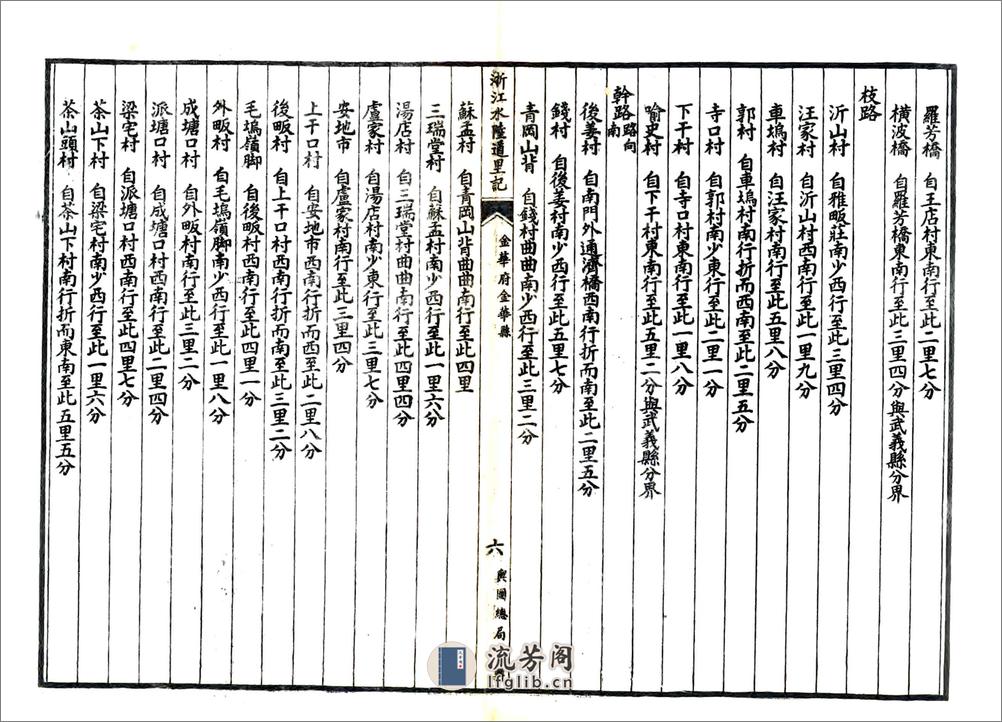 羅芳橋 自王店村東南行至此二里七分
橫波橋 自羅芳橋東南行至此三里四分與武義縣分界
枝路
沂山村 自雅畈莊南少西行至此三里四分
汪家村 自沂山村西南行至此一里九分
車塢村 自汪家村南行至此五里八分
郭村 自車塢村南行折而西南至此二里五分
寺口村 自郭村南少東行至此二里一分
下干村 自寺口村東南行至此一里八分
喻史村 自下干村東南行至此五里二分與武義縣分界
幹路路向南
後姜村 自南門外通濟橋西南行折而南至此二里五分
錢村 自後姜村南少西行至此五里七分
青岡山背 自錢村曲曲南少西行至此三里二分
浙江水陸道里記 金華府金華縣 六 輿圖總局
蘇孟村 自青岡山背曲曲南行至此四里
三瑞堂村 自蘇孟村南少西行至此一里六分
湯店村 自三瑞堂村曲曲南行至此四里四分
盧家村 自湯店村南少東行至此三里七分
安地市 自盧家村南行至此三里四分
上干口村 自安地市西南行折而西至此二里八分
後畈村 自上干口村西南行折而南至此三里二分
毛塢嶺腳 自後畈村西南行至此四里一分
外畈村 自毛塢嶺腳南少西行至此一里八分
成塘口村 自外畈村南行至此三里二分
派塘口村 自成塘口村西南行至此二里四分
梁宅村 自派塘口村西南行至此四里七分
茶山下村 自梁宅村南少西行至此一里六分
茶山頭村 自茶山下村南行折而東南至此五里五分
流芳阁
lfglib.cn